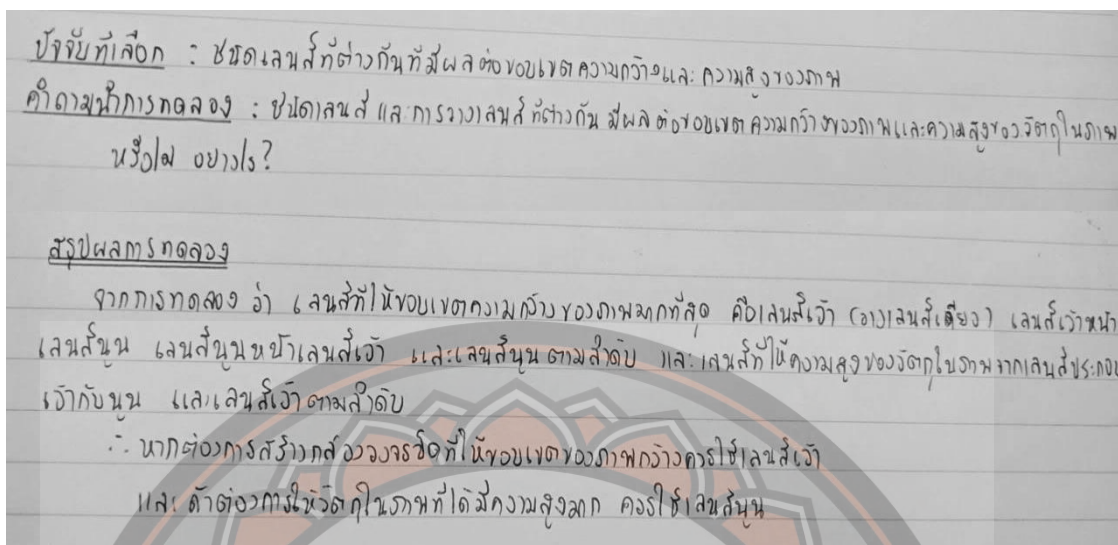 ปัจจัยที่เลือก : ชนิดเลนส์ที่ต่างกันที่มีผลต่อขอบเขตความกว้างและความสูงของภาพ
คำถามนำการทดลอง : ชนิดเลนส์ และการวางเลนส์ที่ต่างกัน มีผลต่อขอบเขตความกว้างของภาพและความสูงของวัตถุในภาพ
หรือไม่ อย่างไร?
สรุปผลการทดลอง
จากการทดลอง ว่า เลนส์ที่ให้ขอบเขตความกว้างของภาพมากที่สุด คือเลนส์เว้า (วางเลนส์เดียว) เลนส์เว้าหน้า
เลนส์นูน เลนส์นูนหน้าเลนส์เว้า และเลนส์นูนตามลำดับ และเลนส์ที่ให้ความสูงของวัตถุในภาพจากเลนส์ประกอบ
เว้ากับนูน และเลนส์เว้าตามลำดับ
∴ หากต้องการสร้างกล้องวงจรปิดที่ให้ขอบเขตของภาพกว้างควรใช้เลนส์เว้า
และ ถ้าต้องการให้วัตถุในภาพที่ได้มีความสูงมาก ควรใช้เลนส์นูน